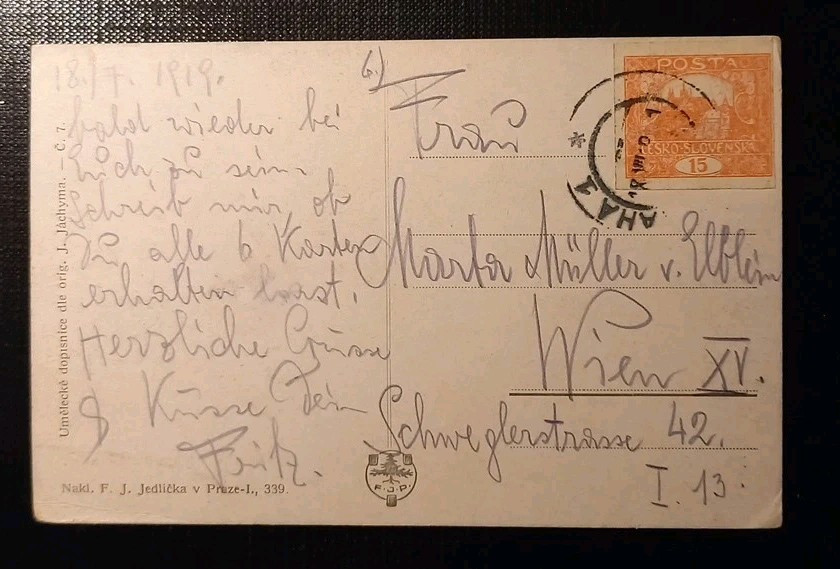 18./7. 1919.
bald wieder bei
Euch zu sein.
Schreib mir, ob
Du alle 6 Karten
erhalten hast.
Herzliche Grüsse
& Küsse Dein
Fritz.
6.)
Frau
Marta Müller v. Elblein
Wien XV.
Schweglerstrasse 42.
I. 13.
POSTA
ČESKO-SLOVENSKÁ
15
AHA 1
*
Umělecké dopisnice dle orig. J. Jáchyma. — Č. 7.
Nakl. F. J. Jedlička v Praze-I., 339.
F. J. P.